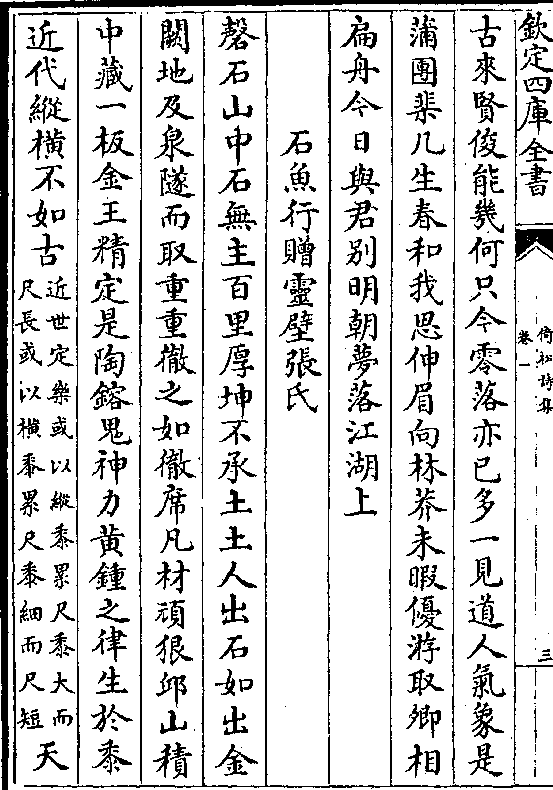 欽定四庫全書
倚松詩集
卷一
三
古來賢俊能幾何只今零落亦已多一見道人氣象是
蒲團棐几生春和我思伸眉向林莽未暇優游取卿相
扁舟今日與君别明朝夢落江湖上
石魚行贈靈壁張氏
磬石山中石無主百里厚坤不承土土人出石如出金
闕地及泉隧而取重重徹之如徹席凡材頑狠邱山積
中藏一板金玉精定是陶鎔鬼神力黄鍾之律生於黍
近代縱横不如古近世定樂或以縱黍累尺黍大而
尺長或以横黍累尺黍細而尺短天